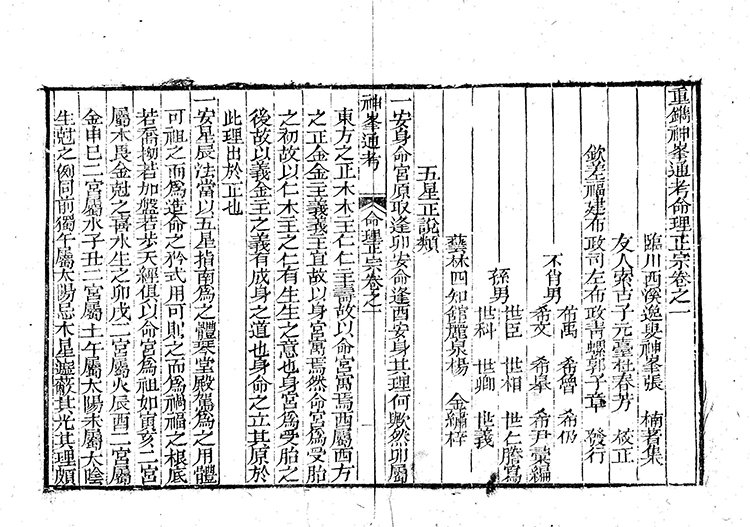 重鐫神峯通考命理正宗卷之一
臨川西溪逸叟神峯張 楠著集
友人索古子元臺杜春芳 校正
欽差福建布政司左布政青螺郭子章 發行
希禹 希魯 希仍
不肖男
希文 希皋 希尹彙編
世臣 世相 世仁謄寫
孫男
世科 世卿 世義
藝林四知館麗泉楊 金繡梓
五星正說類
一安身命宮原取逢卯安命逢酉安身其理何歟然卯屬
神峯通考 命理正宗卷之一
東方之正木木主仁仁主壽故以命宮寓焉酉屬西方
之正金金主義義主宜故以身宮寓焉然命宮爲受胎
之初故以仁木主之仁有生生之意也身宮爲受胎之
後故以義金主之義有成身之道也身命之立其原於
此理出於正也
一安星辰法當以五星指南爲之體琴堂殿駕爲之用體
可祖之而爲造命之矜式用可則之而爲禍福之根底
若喬拗若加盤若步天經俱以命宮爲祖如寅亥二宮
屬木畏金尅之喜水生之卯戌二宮屬火辰酉二宮屬
金申巳二宮屬水子丑二宮屬土午屬太陽未屬太陰
生尅之例同前獨午屬太陽忌木星遮蔽其光其理頗